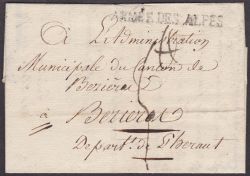 ARMÉE DES ALPES
A L'Administration
Municipale du Canton de
Bezieres
à Bezieres
Depart.t de l'heraut